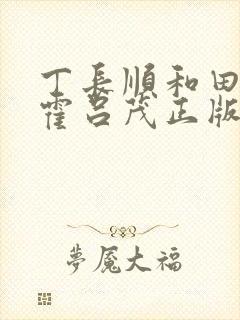 丁長順和田
霍呂茂正版
夢魘大福